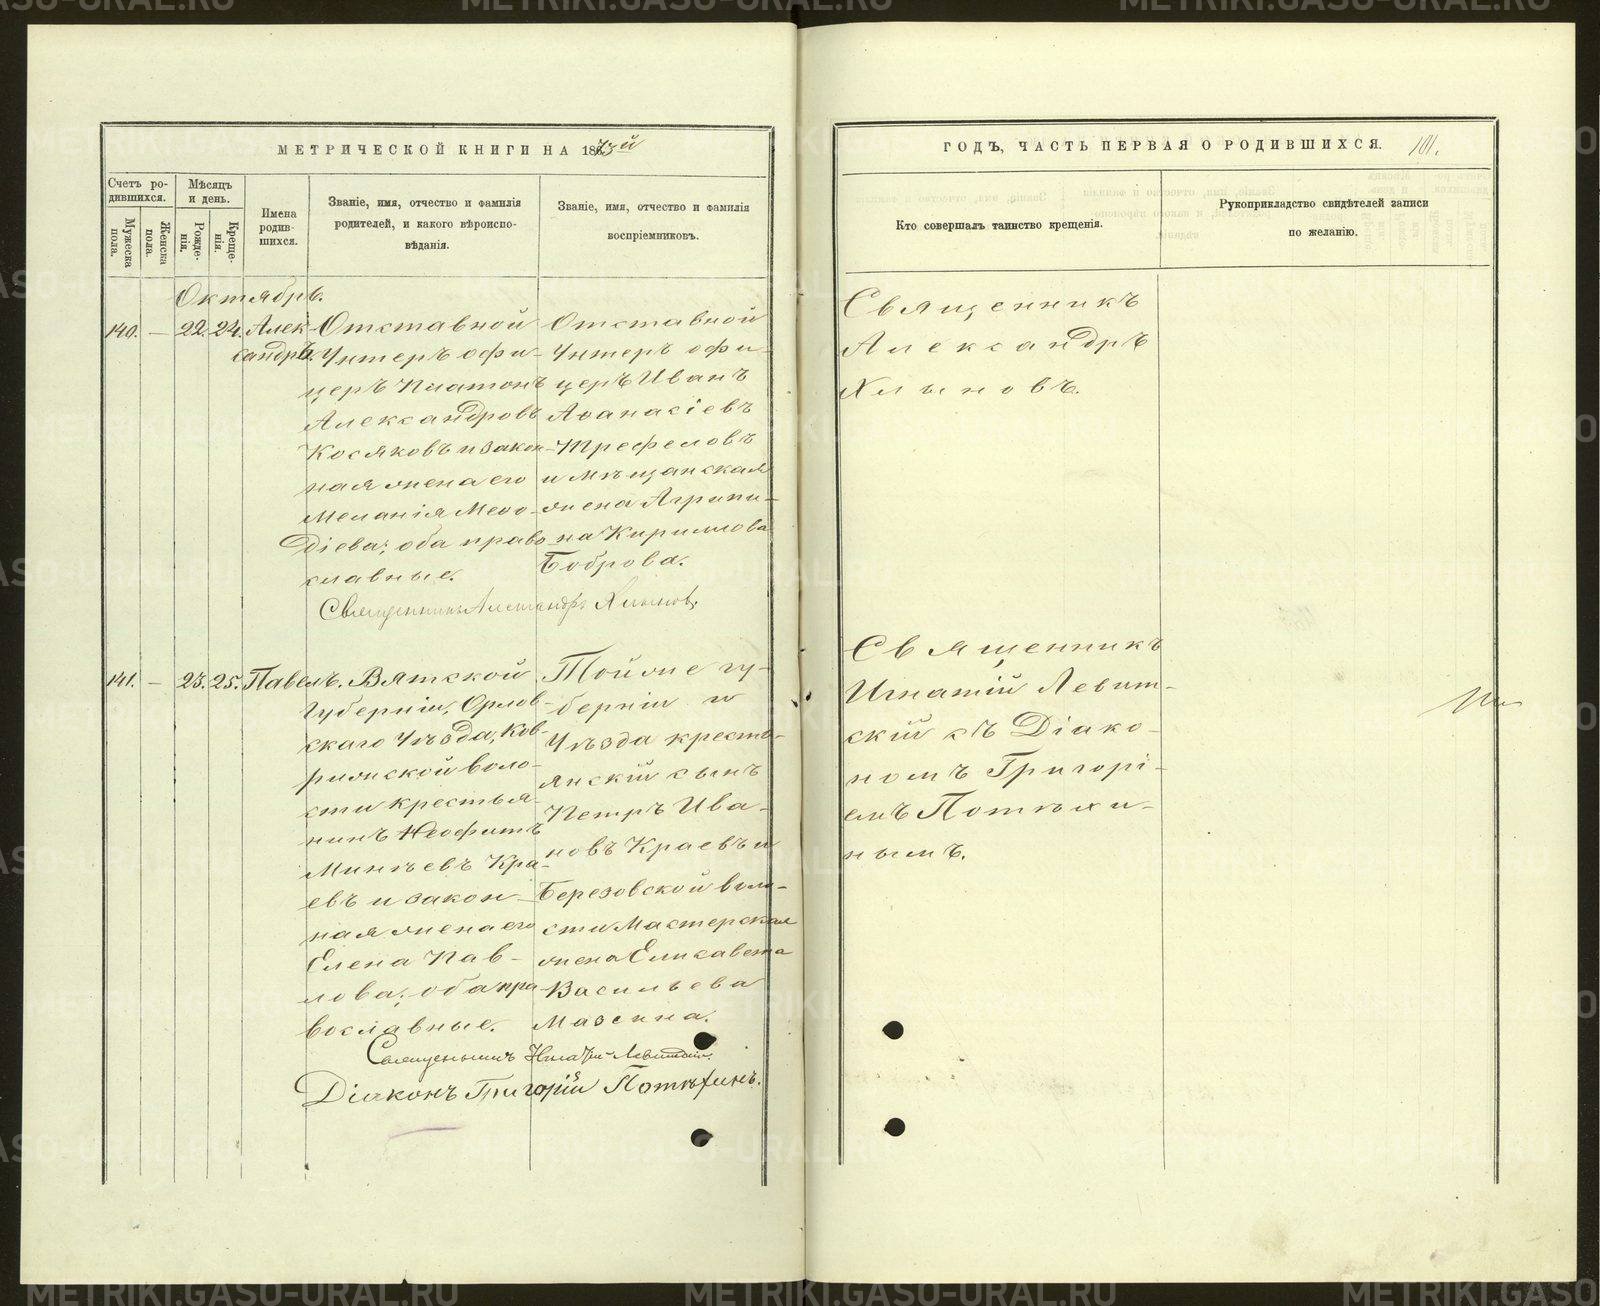 МЕТРИЧЕСКОЙ КНИГИ НА 1873й
Счетъ ро-
дившихся.
Мужеска пола.
Женска пола.
Мѣсяцъ
и день.
Рожде-
нія.
Креще-
нія.
Имена
родив-
шихся.
Званіе, имя, отчество и фамилія
родителей, и какого вѣроиспо-
вѣданія.
Званіе, имя, отчество и фамилія
воспріемниковъ.
Октябрь.
140. — 22. 24. Алек-
сандръ.
Отставной
Унтеръ офи-
церъ Платонъ
Александровъ
Косяковъ и закон-
ная жена его
Меланія Меѳо-
діева; оба право
славные.
Отставной
Унтеръ офи-
церъ Иванъ
Аѳанасіевъ
Трефеловъ
и мѣщанская
жена Агрипи-
на Кириллова
Боброва.
Священникъ Александръ Хлыновъ.
141. — 23. 25. Павелъ.
Вятской
губерніи, Орлов-
скаго Уѣзда, Ков-
рижской воло-
сти крестья-
нинъ Неофитъ
Минѣевъ Кра-
евъ и закон-
ная жена его
Елена Пав-
лова; оба пра
вославные.
Той же гу-
берніи и
Уѣзда кресть-
янскій сынъ
Петръ Ива-
новъ Краевъ и
Березовской воло-
сти Мастерская
жена Елисавета
Васильева
Мазеина.
Священникъ Игнатій Левитскій.
Діаконъ Григорій Потѣхинъ.
ГОДЪ, ЧАСТЬ ПЕРВАЯ О РОДИВШИХСЯ. 101.
Кто совершалъ таинство крещенія.
Рукоприкладство свидѣтелей записи
по желанію.
Священникъ
Александръ
Хлыновъ.
Священникъ
Игнатій Левит-
скій съ Діако-
номъ Григорі-
емъ Потѣхи-
нымъ.
METRIKI.GASO-URAL.RU